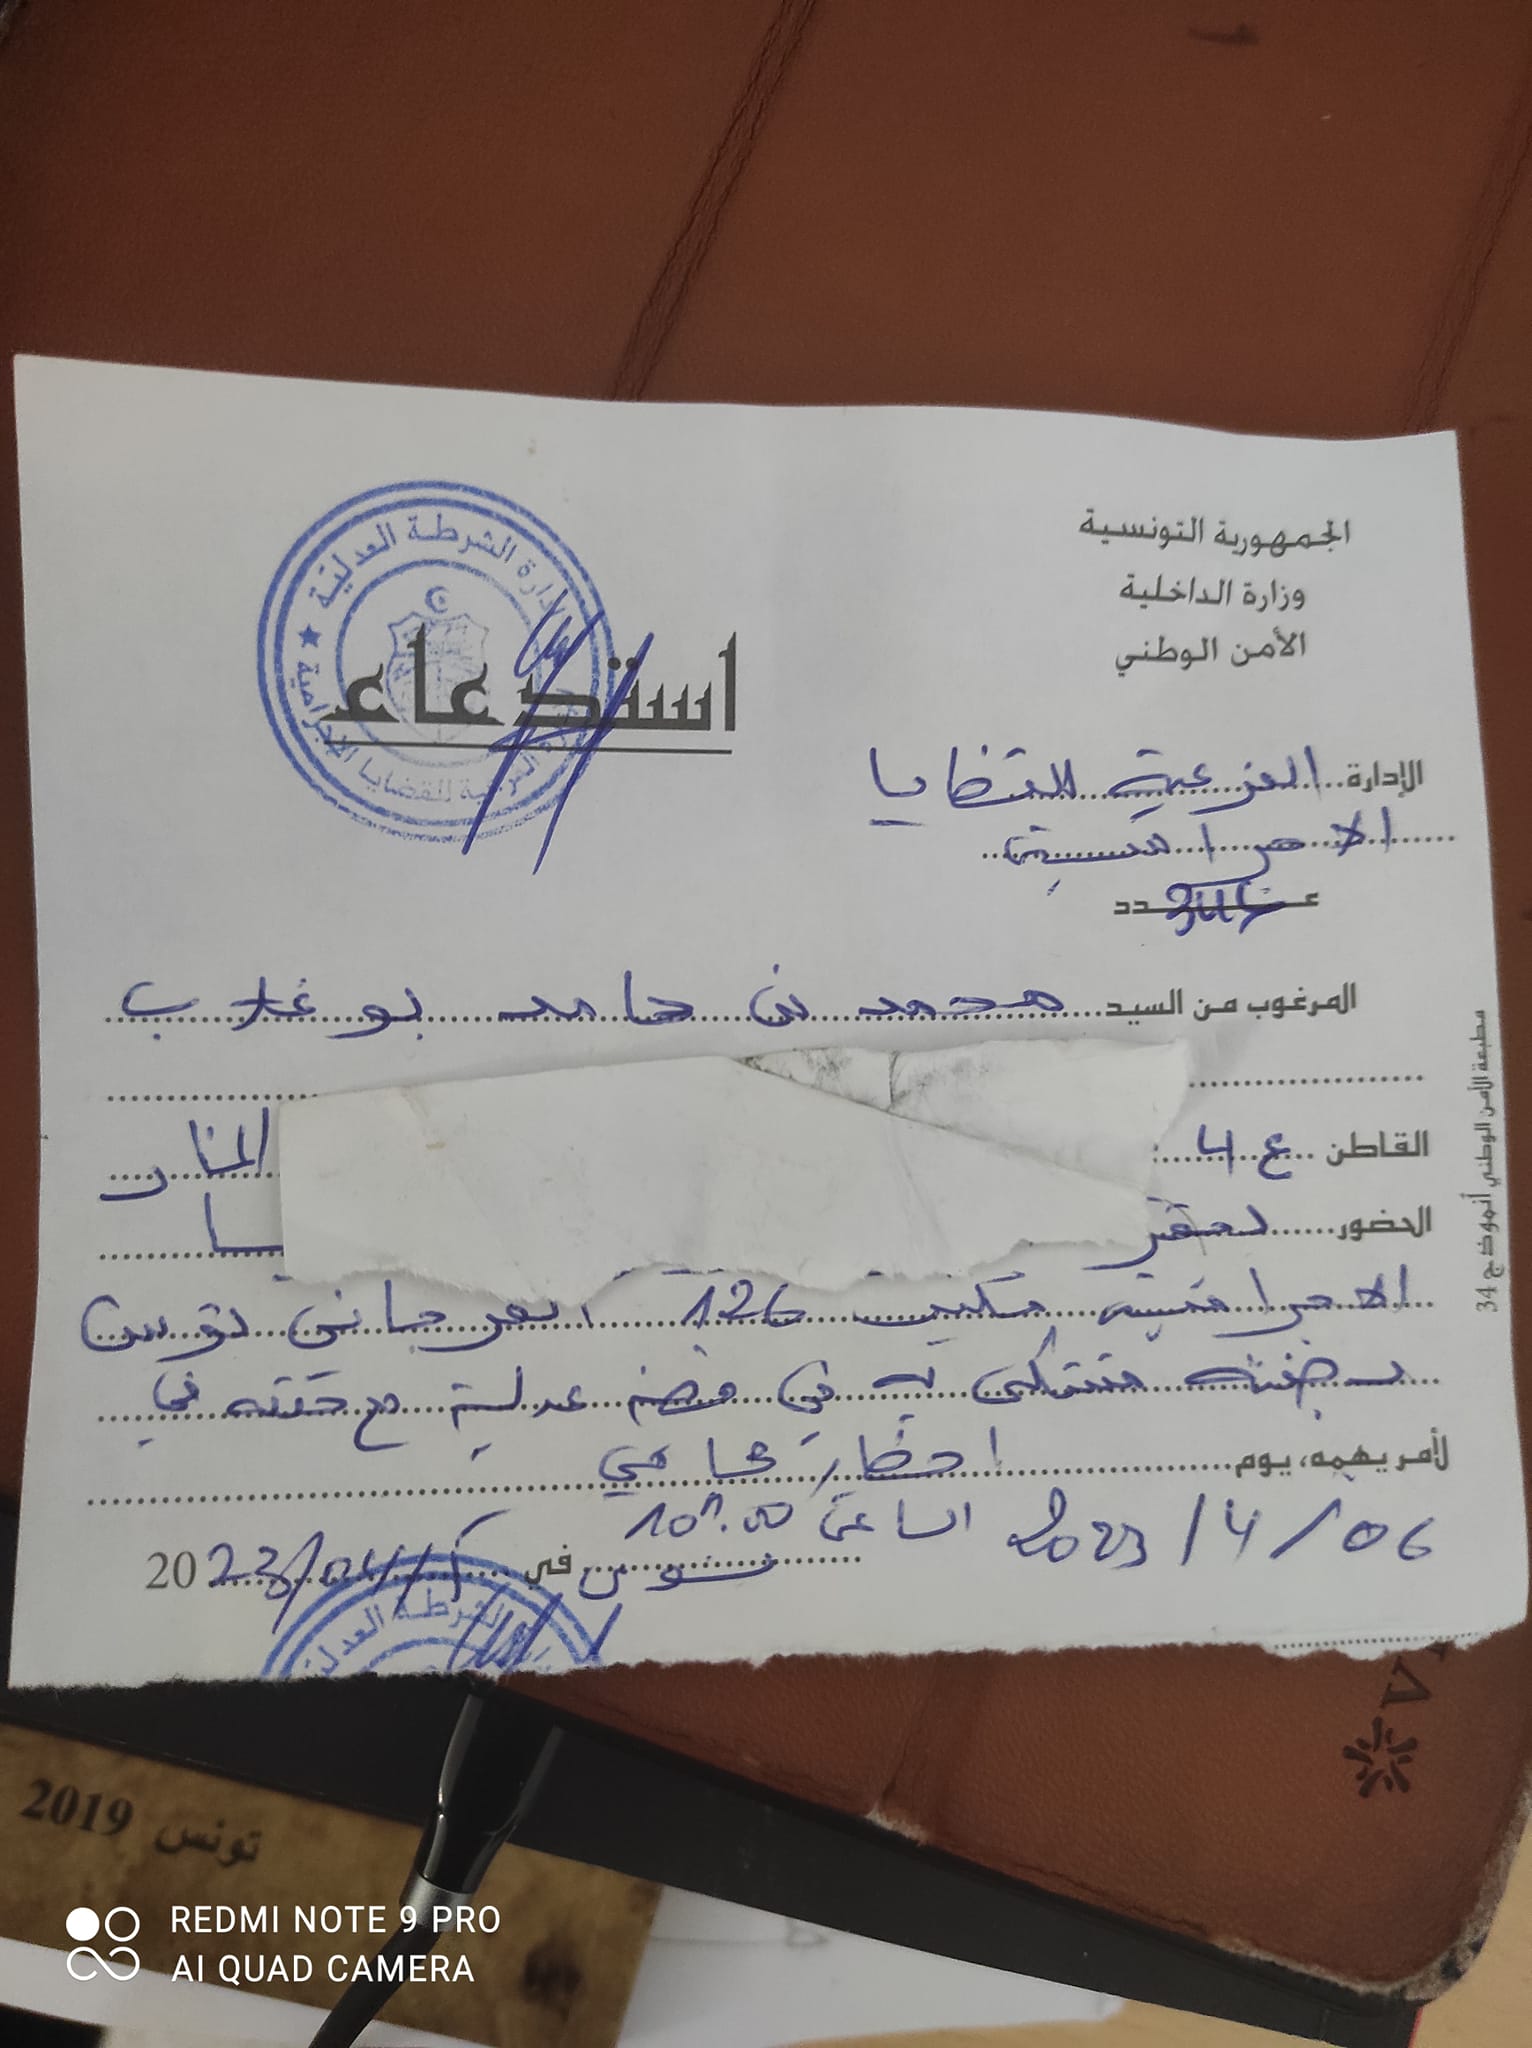 الجمهورية التونسية
وزارة الداخلية
الأمن الوطني
إدارة الشرطة العدلية
استدعاء
الإدارة الفرعية للقضايا
الاجرامية
عدد
المرغوب من السيد محمد بن حامد بوغلاب
القاطن ع 4 المنار
الحضور بمقر
الاجرامية مكتب 126 القرجاني تونس
بصفته مشتكى به في قضية عدلية مع حقه في
لأمر يهمه، يوم احضار محامي
2023/4/06 الساعة 10h.00
تونس في 2023/04/
الشرطة العدلية
مطبعة الأمن الوطني أنموذج 34
تونس 2019
REDMI NOTE 9 PRO
AI QUAD CAMERA